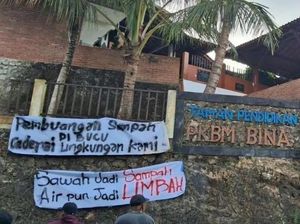 Pembuangan Sampah
DI BVCU
Cederai Lingkungan kami
Sawah Jadi Sampah
Air pun Jadi LIMBAH
TAMAN PENDIDIKAN
PKBM BINA